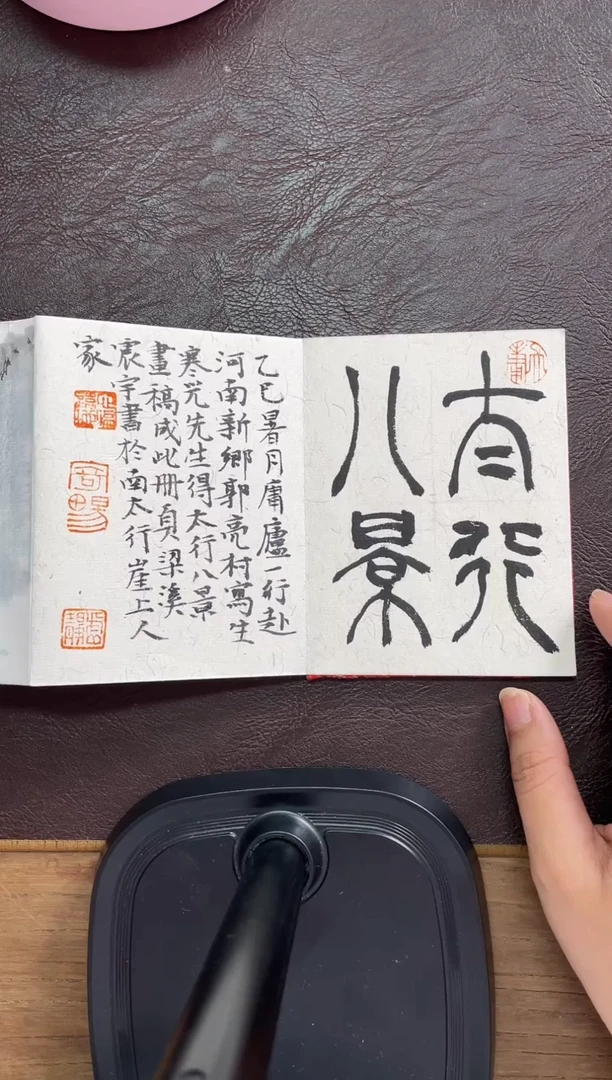 太行
八景
乙巳暑月庸廬一行赴
河南新鄉郭亮村寫生
寒光先生得太行八景
畫稿成此冊頁梁溪
宸宇書於南太行崖上人
家